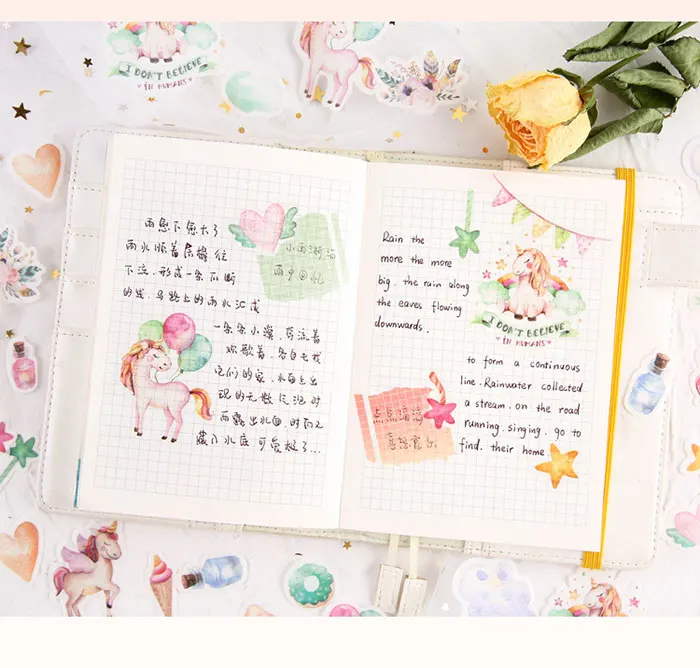 I DON'T BELIEVE
IN HUMANS
雨愈下愈大了
雨水顺着房檐往
下流.形成一条不断
的线.马路上的雨水汇成
一条条小溪,奔流着
欢歌着,各自去找
它们的家,水面上出
现的无数气泡时
而露出水面时而又
藏入水底可爱极了...
小雨淅沥
雨中回忆
Rain the
more the more
big. the rain along
the eaves flowing
downwards.
I DON'T BELIEVE
IN HUMANS
to form a continuous
line. Rainwater collected
a stream. on the road
running. singing. go to
find. their home
点点滴滴